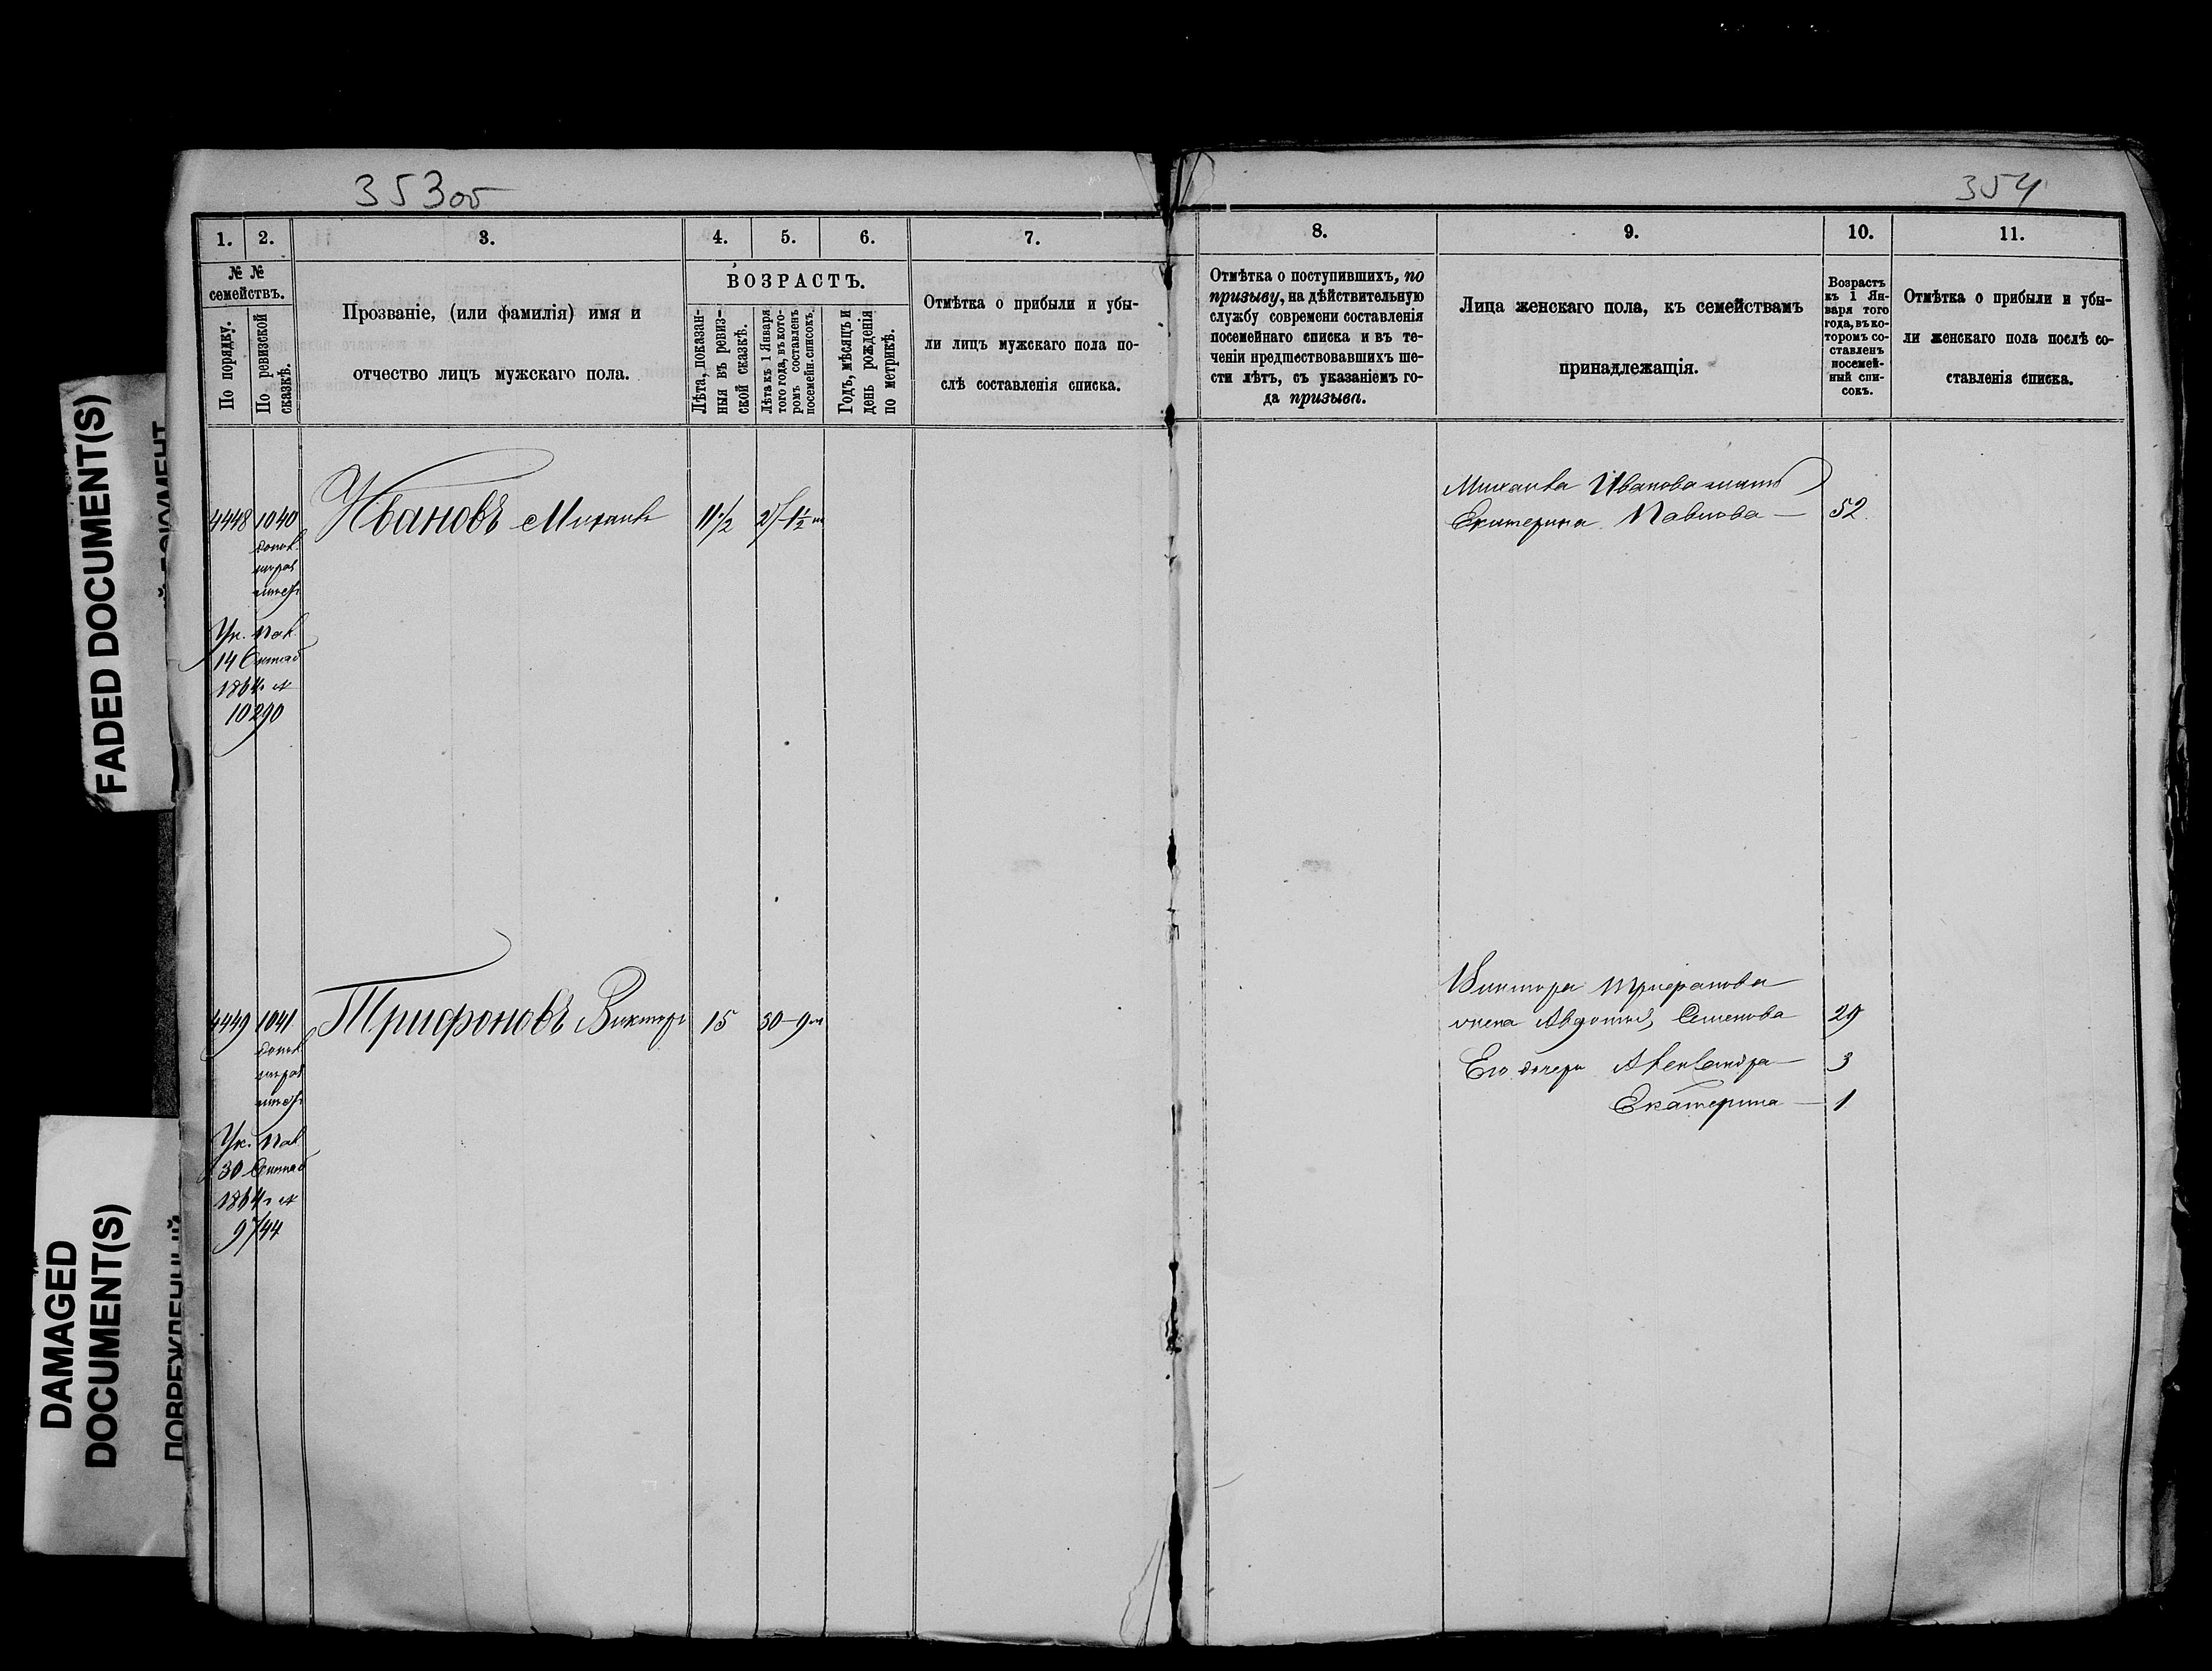 353об
354
1.
2.
3.
4.
5.
6.
7.
8.
9.
10.
11.
№ №
семействъ.
По порядку.
По ревизской
сказкѣ.
Прозваніе, (или фамилія) имя и
отчество лицъ мужскаго пола.
ВОЗРАСТЪ.
Лѣта, показан-
ныя въ ревиз-
ской сказкѣ.
Лѣта къ 1 Января
того года, въ кото-
ромъ составленъ
посемейн. списокъ.
Годъ, мѣсяцъ и
день рожденія
по метрикѣ.
Отмѣтка о прибыли и убы-
ли лицъ мужскаго пола по-
слѣ составленія списка.
Отмѣтка о поступившихъ, по
призыву, на дѣйствительную
службу современи составленія
посемейнаго списка и въ те-
ченіи предшествовавшихъ ше-
сти лѣтъ, съ указаніемъ го-
да призыва.
Лица женскаго пола, къ семействамъ
принадлежащія.
Возрастъ
къ 1 Ян-
варя того
года, въ ко-
торомъ со-
ставленъ
посемей-
ный спи-
сокъ.
Отмѣтка о прибыли и убы-
ли женскаго пола послѣ со-
ставленія списка.
4448 1040 Ивановъ Михаилъ 11½ 27-1½ м
Михаила Иванова мать
Екатерина Павлова — 52
Ук. Пал.
14 Октяб
1864 г №
10290
4449 1041 Трифоновъ Викторъ 15 30-9 м
Виктора Трифонова
жена Авдотья Семенова 29
Его дочери Александра 3
Екатерина — 1
Ук. Пал
30
1864 г №
9744
FADED DOCUMENT(S)
DAMAGED
DOCUMENT(S)
ПОВРЕЖДЕННЫЙ